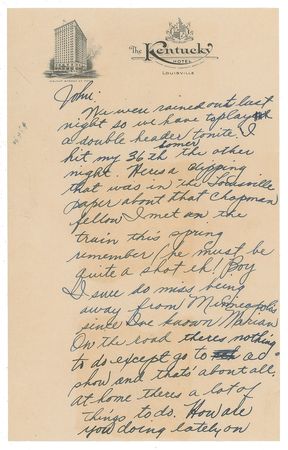 The
Kentucky
HOTEL
LOUISVILLE
WALNUT STREET AT FIFTH
John:
We were rained out last
night so we have to play
a double header tonite. I
hit my 36th homer the other
night. Heres a clipping
that was in the Louisville
paper about that Chapman
fellow I met on the
train this spring
remember, he must be
quite a shot eh! Boy
I sure do miss being
away from Minneapolis
since Ive known Marian
On the road theres nothing
to do except go to a
show and thats about all.
at home theres a lot of
things to do. How are
you doing lately on